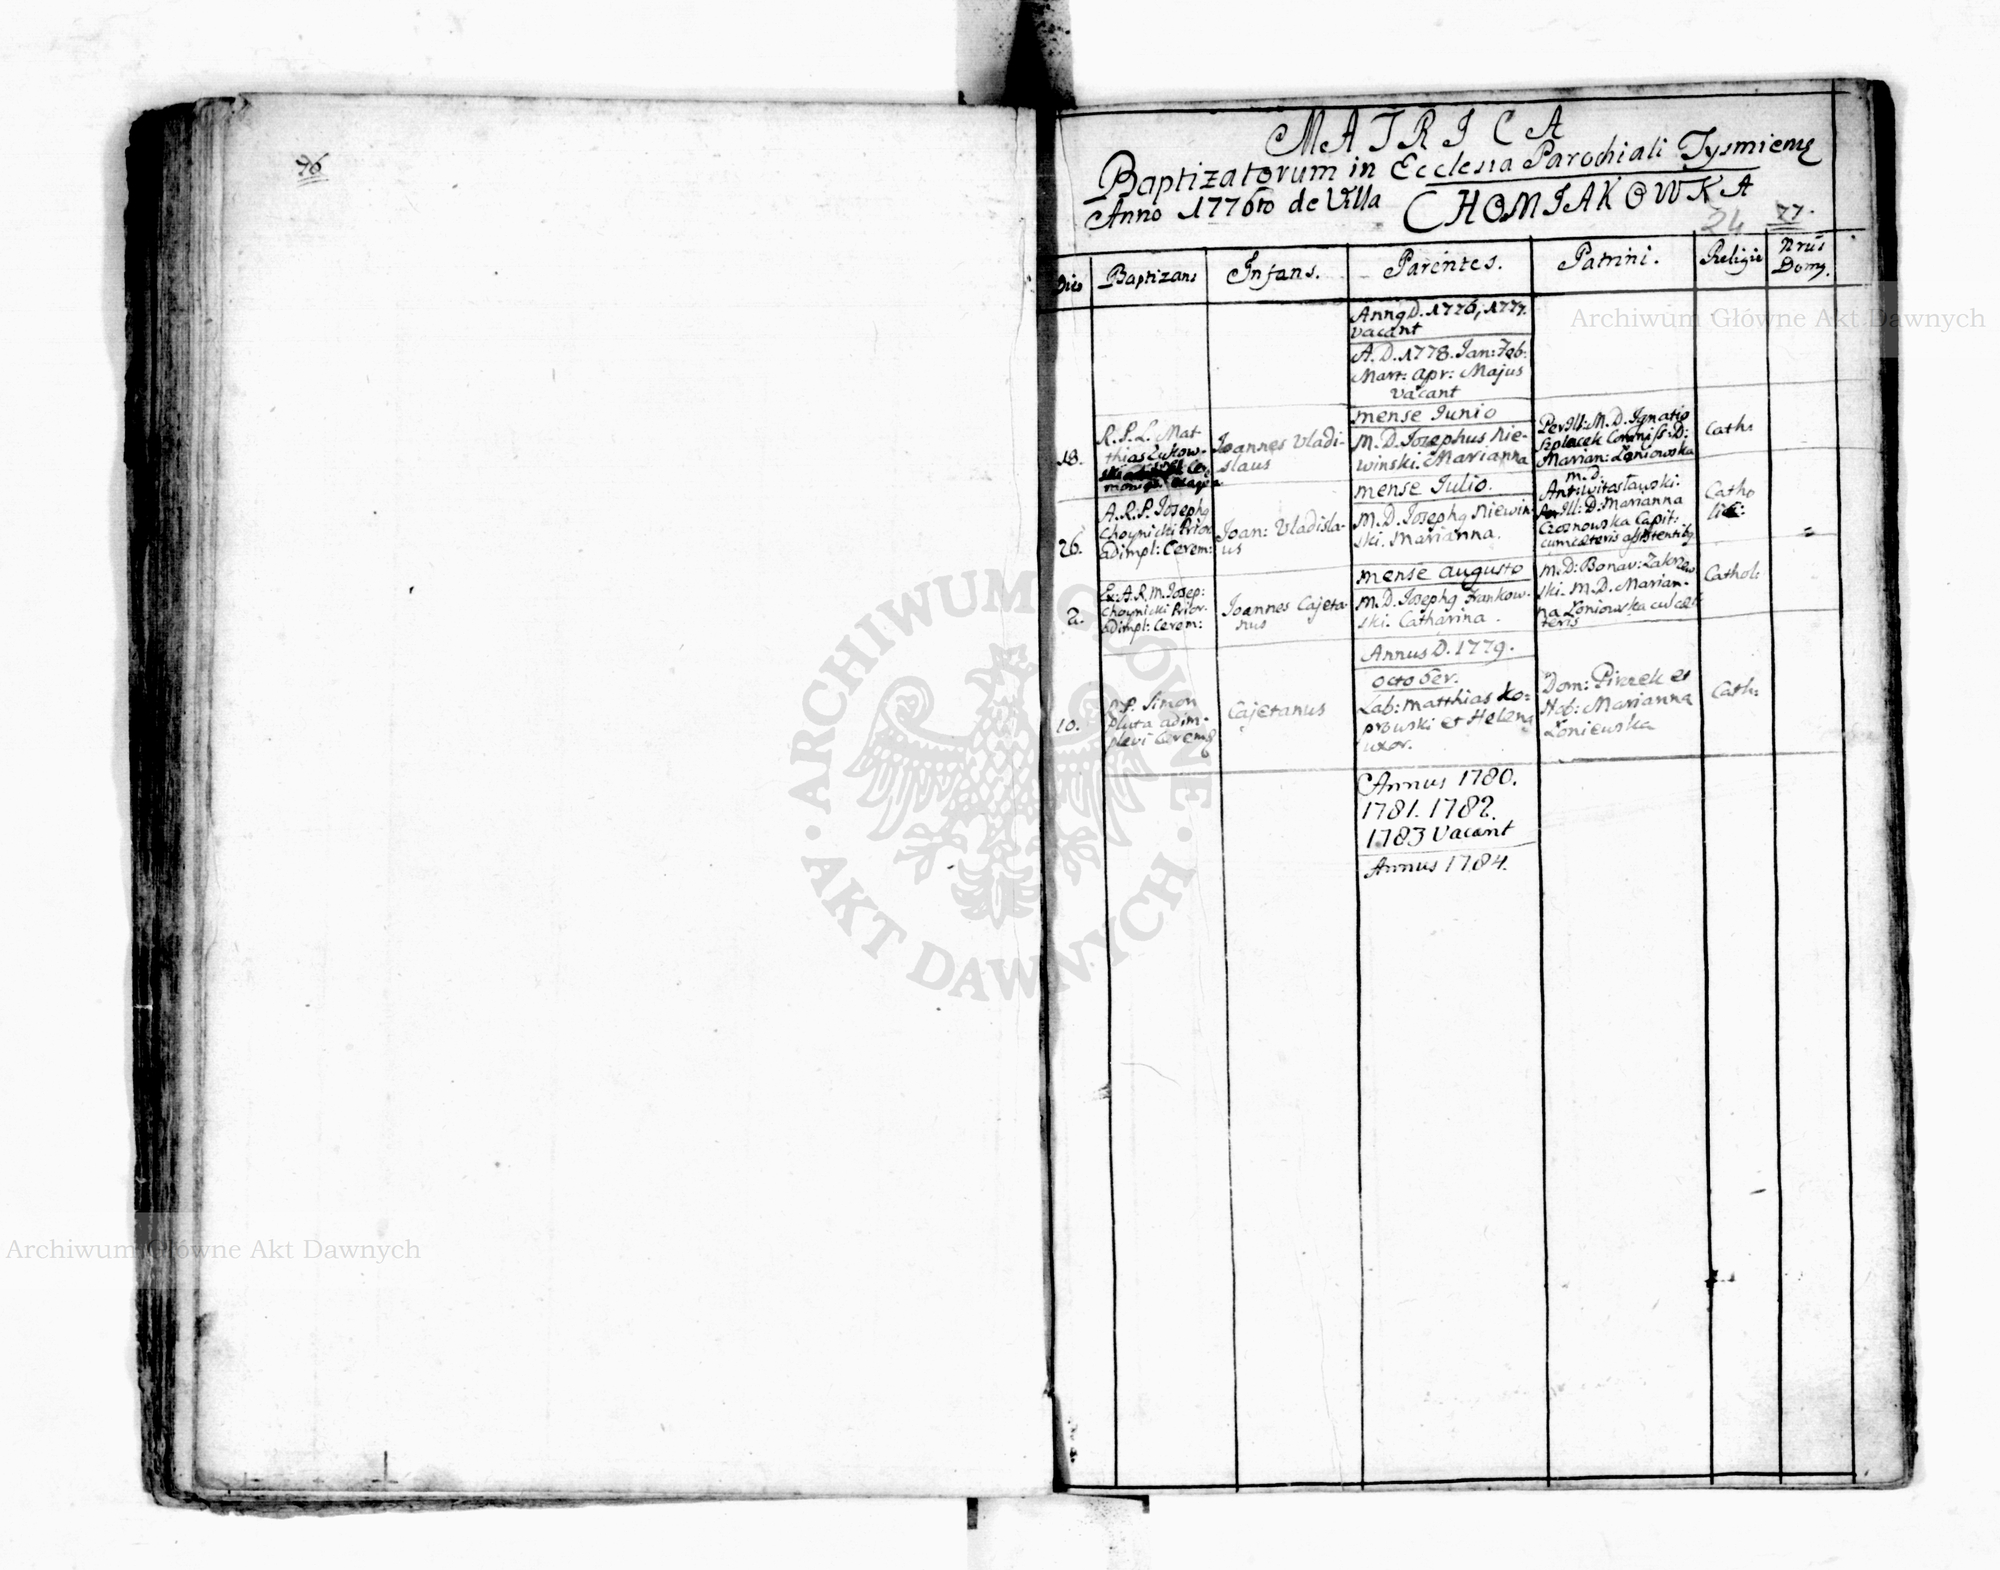 76
MATRICA
Baptizatorum in Ecclesia Parochiali Tysmienę
Anno 1776to de Villa CHOMIAKOWKA
24 77.
Dies Baptizans Infans. Parentes. Patrini. Religio Nrus Domy.
Annq D. 1776, 1777.
vacant
A. D. 1778. Jan: Feb:
Mart: Apr: Majus
vacant
mense Junio
18.
R. P. L. Mat-
thias Łukow-
ski
Joannes Vladi-
slaus
M. D. Josephus Nie-
winski. Marianna
Per Ill: M. D. Ignatio
Commiss: D:
Marian: Łoniowska
Cath:
mense Julio.
26.
A. R. P. Josephq
Choynicki Prior
adimpl: Cerem:
Joan: Vladisla-
us
M. D. Josephq Niewin-
ski. Marianna.
M. D.
Ant: Witosławski.
Ill: D: Marianna
Czosnowska Capit:
cum cæteris assistentibq
Catho
lic:
=
mense Augusto
2.
Ex: A. R. M. Josep:
Choynicki Prior.
adimpl: Cerem:
Joannes Cajeta-
nus
M. D. Josephq Frankow-
ski. Catharina.
M. D: Bonav: Zakrzew
ski. M. D. Marian-
na Łoniowska cu cæ
teris
Cathol:
Annus D. 1779.
October.
10.
R. P. Simon
Pluta adim-
plevi Cerem
Cajetanus
Lab: Matthias Ko-
prowski et Helena
uxor.
Dom: Pirzek et
Nob: Marianna
Łoniewska
Cath:
Annus 1780.
1781. 1782.
1783 Vacant
Annus 1784.
Archiwum Główne Akt Dawnych
Archiwum Główne Akt Dawnych
ARCHIWUM GŁÓWNE · AKT DAWNYCH ·